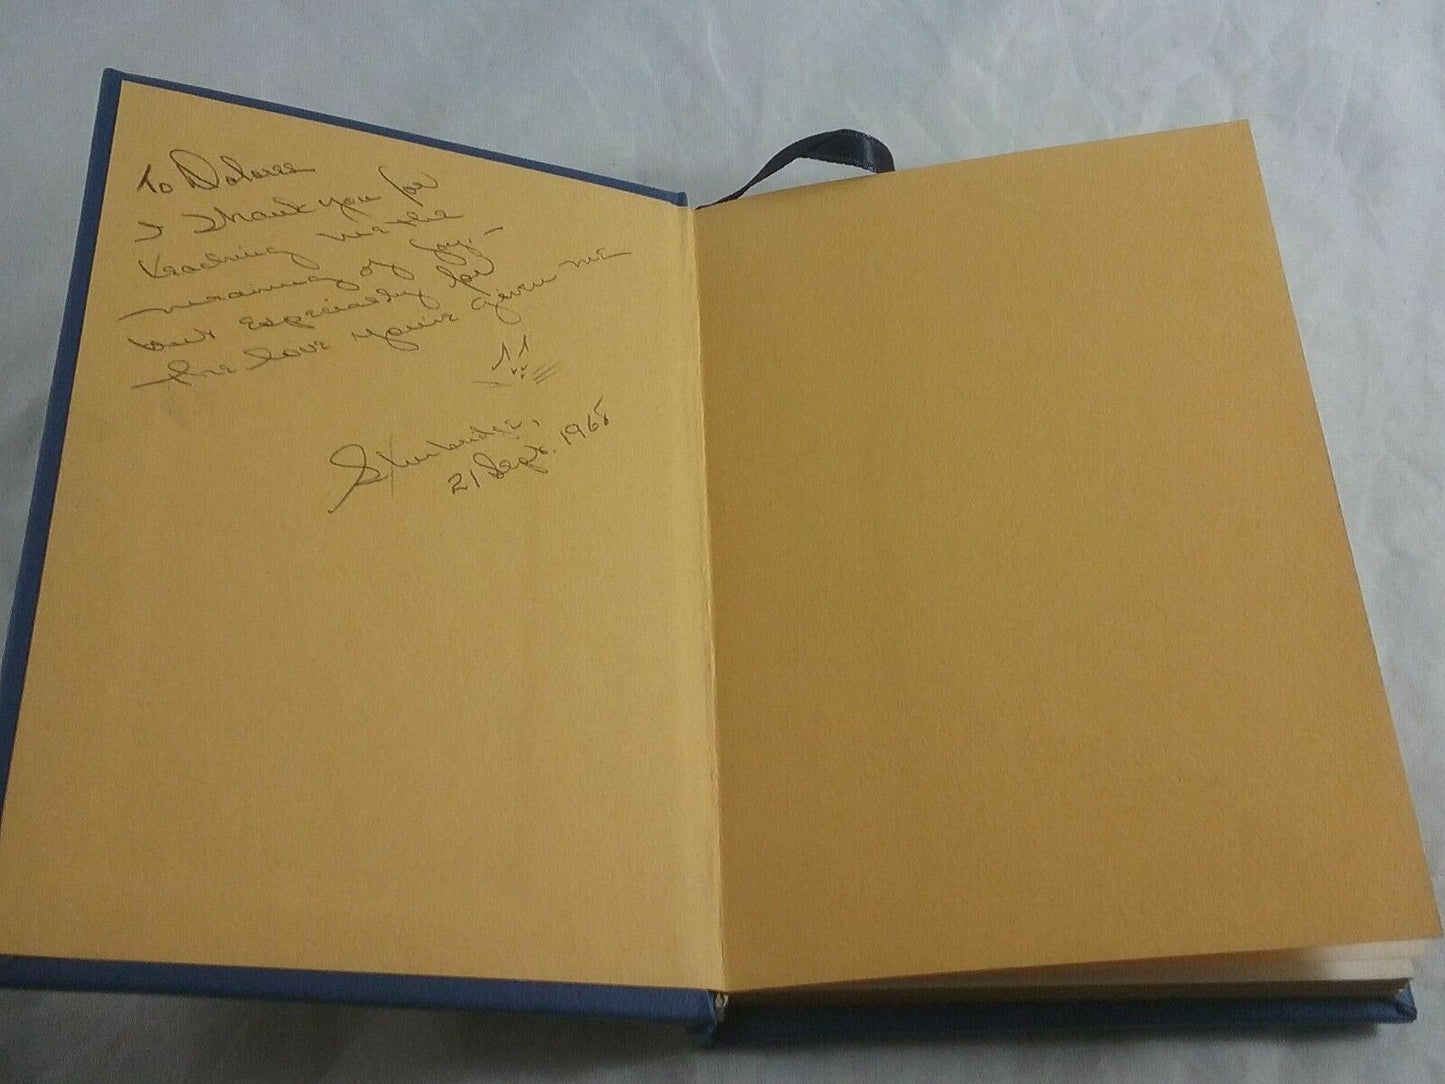 To Dolores
I thank you for
teaching me the
meaning of joy, –
but especially for
the love you've given me
!!
21 Sept. 1968